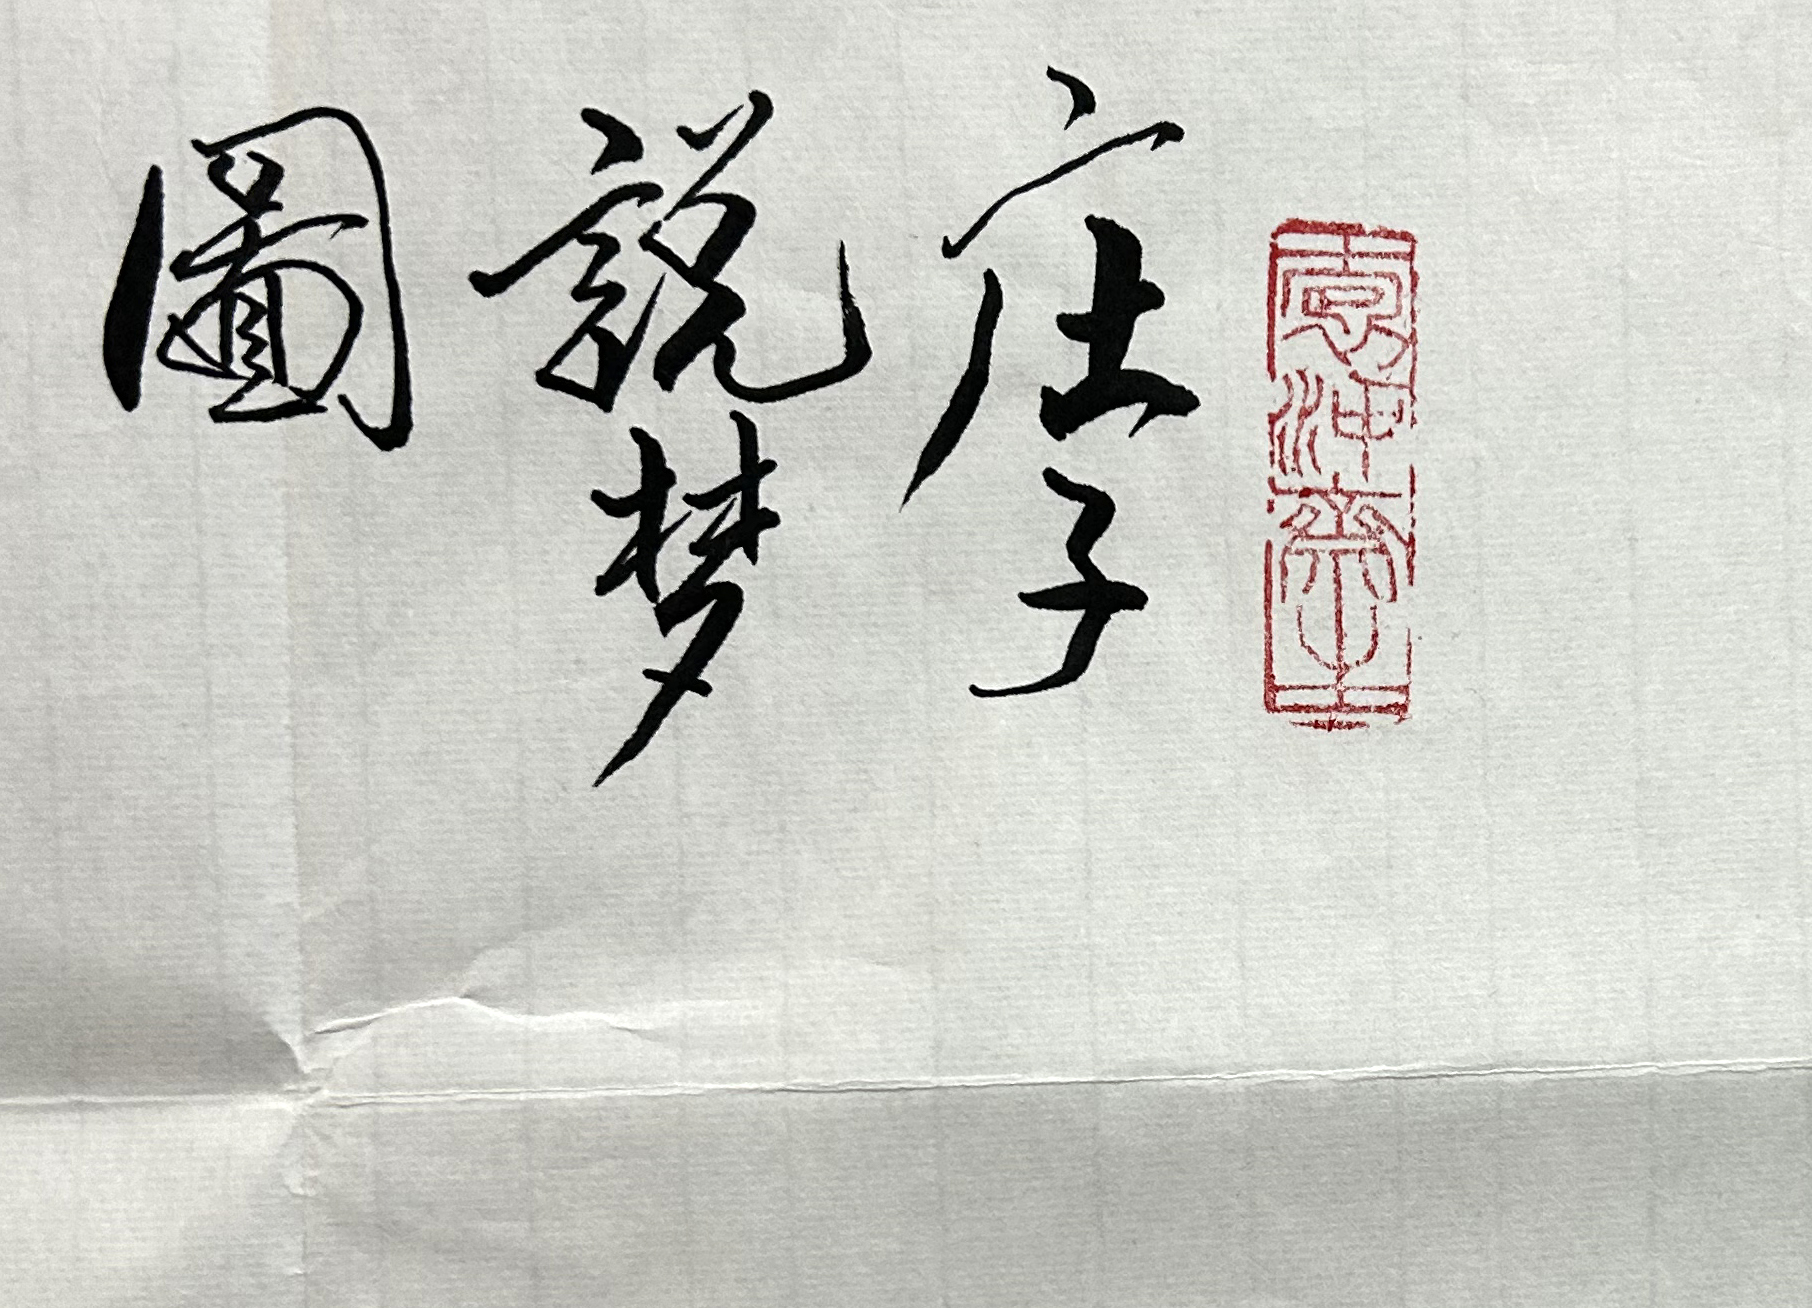 庄子
説梦
圖